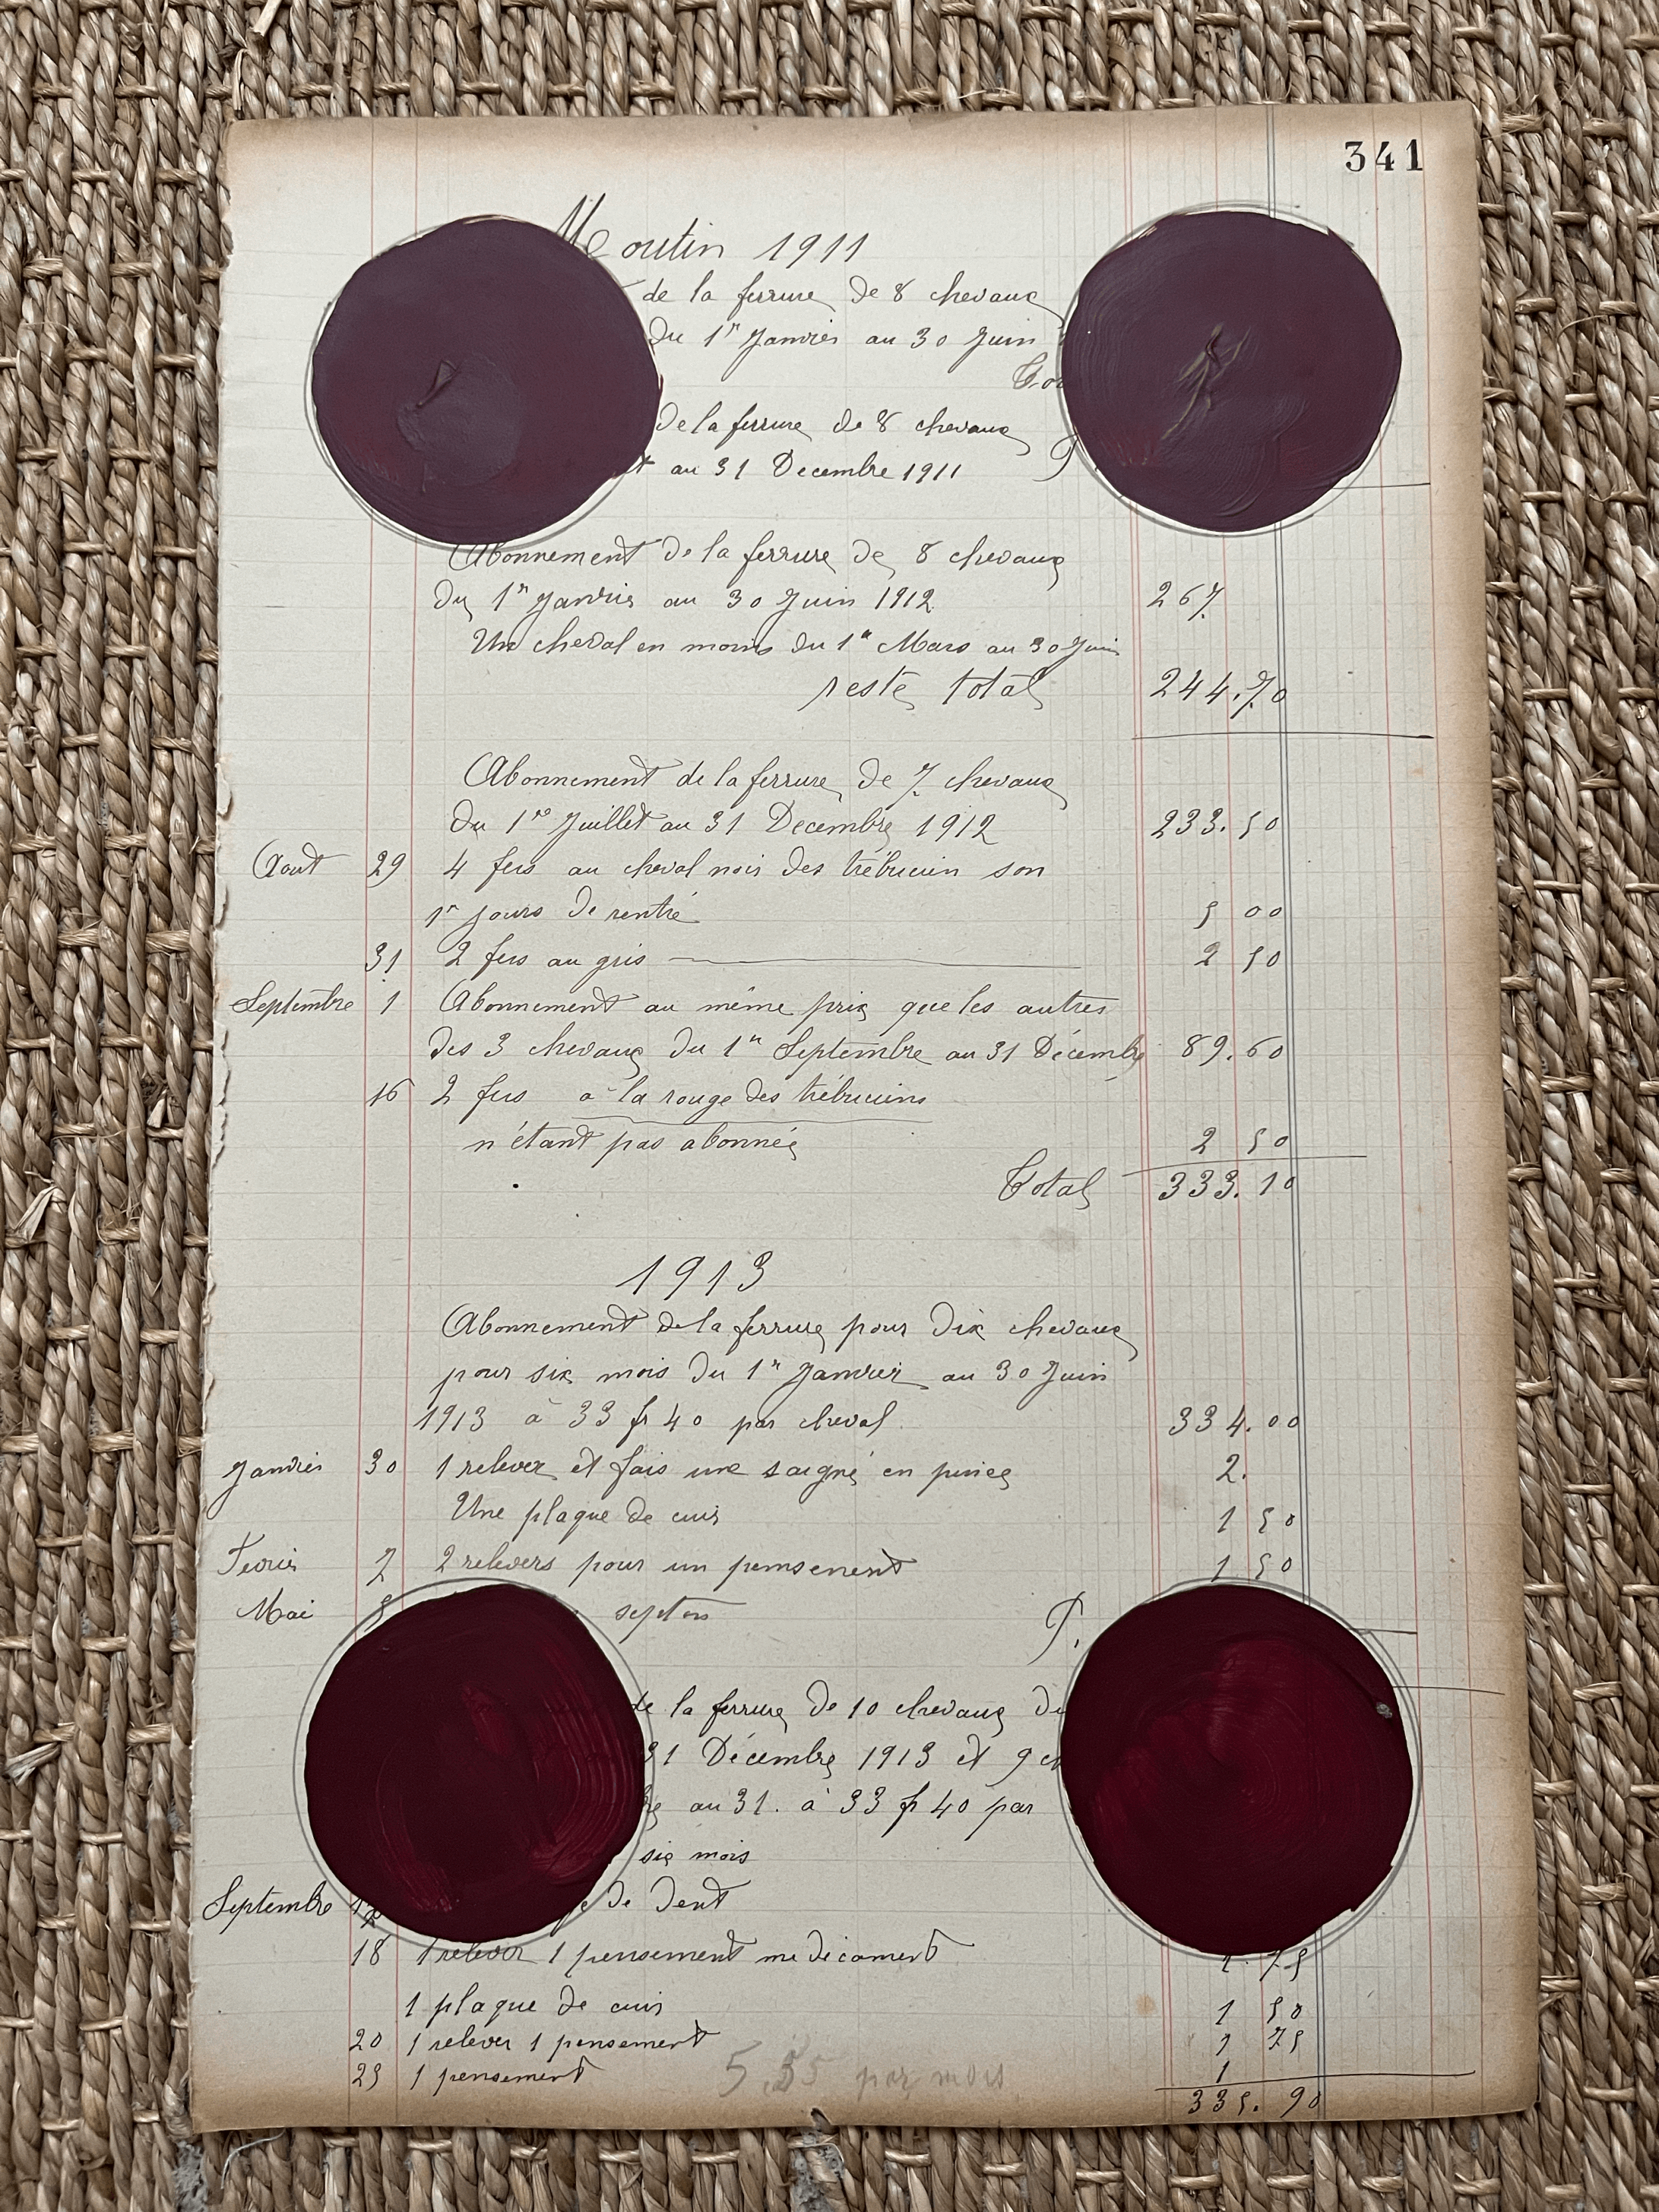 341
Moutin 1911
de la ferrure de 8 chevaux
du 1er Janvier au 30 Juin
de la ferrure de 8 chevaux
au 31 Decembre 1911
Abonnement de la ferrure de 8 chevaux
Du 1er Janvier au 30 Juin 1912 267
Un cheval en moins du 1er Mars au 30 Juin
reste total 244.70
Abonnement de la ferrure de 7 chevaux
Du 1er Juillet au 31 Decembre 1912 233.50
Aout 29 4 fers au cheval noir des trébucien son
1er jours de rentré 5 00
31 2 fers au gris 2 50
Septembre 1 Abonnement au même prix que les autres
des 3 chevaux du 1er Septembre au 31 Décembre 89.60
16 2 fers à la rouge des trébuciens
n'étant pas abonnée 2 50
Total 333.10
1913
Abonnement de la ferrure pour Dix chevaux
pour six mois Du 1er Janvier au 30 Juin
1913 à 33 fr 40 par cheval 334.00
Janvier 30 1 relever et fais une saigné en pince 2.
Une plaque de cuir 1 50
Fevrier 7 2 relevers pour un pensement 1 50
Mai 8
de la ferrure de 10 chevaux
31 Décembre 1913 et 9
au 31. à 33 fr 40 par
six mois
Septembre de Dent
18 1 relever 1 pensement medicament 1.75
1 plaque de cuir 1 50
20 1 relever 1 pensement 1 75
25 1 pensement 1
5.55 par mois
335.90